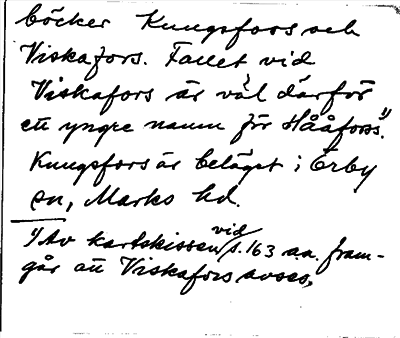 böcker Kungsfors och
Viskafors. Fallet vid
Viskafors är väl därför
ett yngre namn för Hååfors.¹⁾
Kungsfors är beläget i Örby
sn, Marks hd.
¹⁾ Av kartskissen vid s. 163 a.a. fram-
går att Viskafors avses.